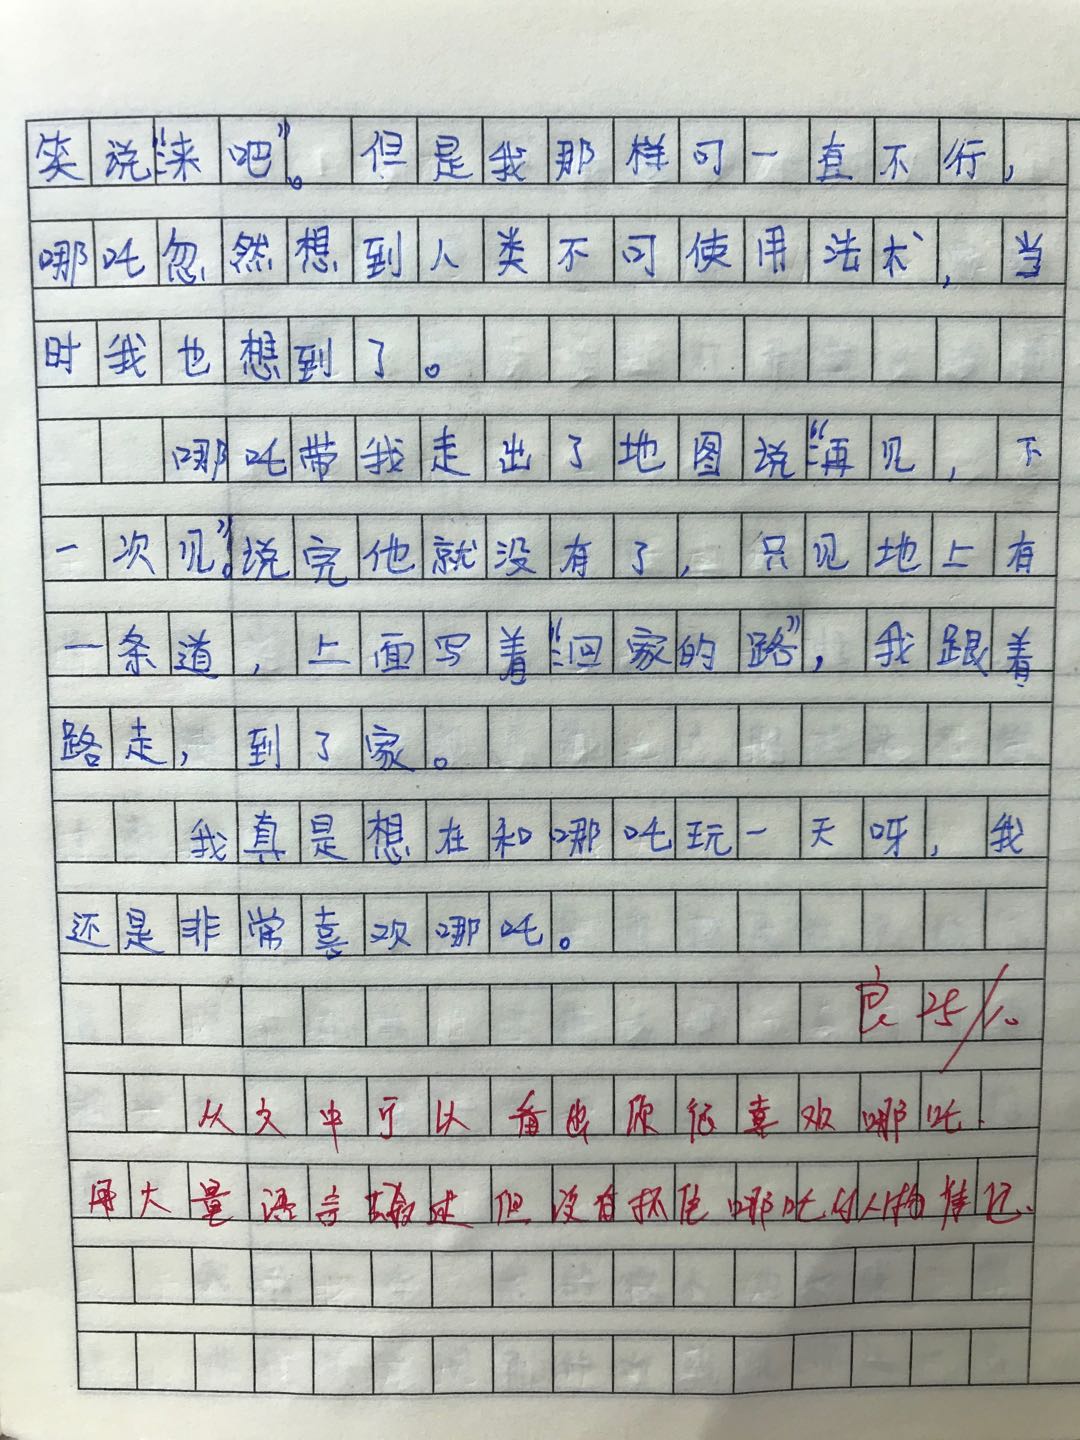 笑说“来吧”。但是我那样可一直不行，
哪吒忽然想到人类不可使用法术，当
时我也想到了。
哪吒带我走出了地图说“再见，下
一次见”。说完他就没有了，只见地上有
一条道，上面写着“回家的路”，我跟着
路走，到了家。
我真是想在和哪吒玩一天呀，我
还是非常喜欢哪吒。
良 25
从文中可以看出你很喜欢哪吒.
用大量语言叙述但没有抓住哪吒的人物特记.